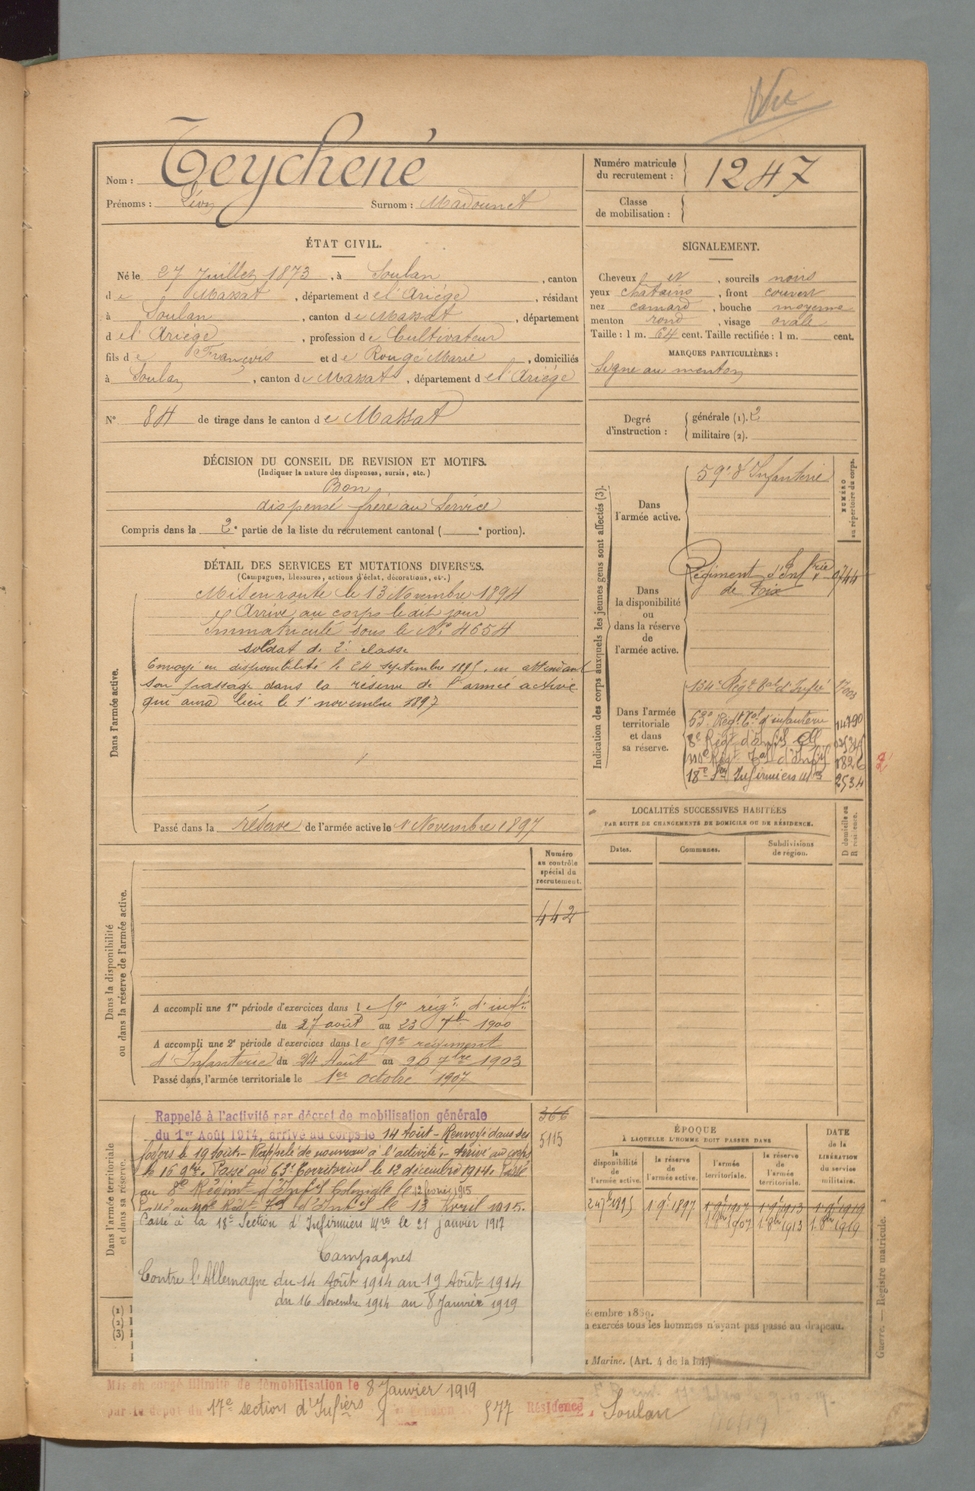 Vu
Nom : Teychené
Prénoms : Léon Surnom : Madounet
Numéro matricule du recrutement : 1247
Classe de mobilisation :
ÉTAT CIVIL.
Né le 27 Juillet 1873, à Soulan, canton
de Massat, département de l'Ariége, résidant
à Soulan, canton de Massat, département
de l'Ariége, profession de Cultivateur
fils de François et de Rouge Marie, domiciliés
à Soulan, canton de Massat, département de l'Ariége
N° 84 de tirage dans le canton de Massat
SIGNALEMENT.
Cheveux et, sourcils noirs
yeux chatains, front couvert
nez camard, bouche moyenne
menton rond, visage ovale
Taille : 1 m. 64 cent. Taille rectifiée : 1 m. cent.
MARQUES PARTICULIÈRES :
Signe au menton
Degré d'instruction : générale (1). 2
militaire (2).
DÉCISION DU CONSEIL DE REVISION ET MOTIFS.
(Indiquer la nature des dispenses, sursis, etc.)
Bon
dispensé frère au Service
Compris dans la 2e partie de la liste du recrutement cantonal ( e portion).
DÉTAIL DES SERVICES ET MUTATIONS DIVERSES.
(Campagnes, blessures, actions d'éclat, décorations, etc.)
Dans l'armée active.
Mis en route le 13 Novembre 1894
Arrivé au corps le dit jour
Immatriculé sous le N° 4654
soldat de 2e classe
Envoyé en disponibilité le 24 Septembre 1895, en attendant
son passage dans la réserve de l'armée active
qui aura lieu le 1er novembre 1897
Passé dans la réserve de l'armée active le 1 Novembre 1897
Indication des corps auxquels les jeunes gens sont affectés (3).
NUMÉRO au répertoire du corps.
Dans l'armée active. 59e d'Infanterie
Dans la disponibilité ou dans la réserve de l'armée active. Régiment d'Infterie de Foix 0744
Dans l'armée territoriale et dans sa réserve. 134e Régt tal d'Infie
63e Régt tal d'infanterie 14790
8e Régt d'Infie Cle
Régt tal d'Infie
18e Son Infirmiers Mres 2534
LOCALITÉS SUCCESSIVES HABITÉES
PAR SUITE DE CHANGEMENTS DE DOMICILE OU DE RÉSIDENCE.
Dates. Communes. Subdivisions de région. D domicile ou R résidence.
Dans la disponibilité ou dans la réserve de l'armée active.
Numéro au contrôle spécial du recrutement.
442
A accompli une 1re période d'exercices dans le 59e régt d'infie
du 27 août au 23 7bre 1900
A accompli une 2e période d'exercices dans le 59e régiment
d'Infanterie du 24 Août au 20 7bre 1903
Passé dans l'armée territoriale le 1er octobre 1907
Dans l'armée territoriale et dans sa réserve.
366
5115
Rappelé à l'activité par décret de mobilisation générale
du 1er Août 1914, arrivé au corps le 14 Août - Renvoyé dans ses
foyers le 19 Août - Rappelé de nouveau à l'activité - Arrivé au corps
le 16 9bre. Passé au 63e Territorial le 12 décembre 1914. Passé
au 8e Régiment d'Infie Coloniale le 12 février 1915
le 13 Avril 1915.
Passé à la 18e Section d'Infirmiers Mres le 21 janvier 1917
Campagnes
Contre l'Allemagne du 14 Août 1914 au 19 Août 1914
du 16 Novembre 1914 au 8 Janvier 1919
ÉPOQUE
À LAQUELLE L'HOMME DOIT PASSER DANS
la disponibilité de l'armée active. la réserve de l'armée active. l'armée territoriale. la réserve de l'armée territoriale.
DATE de la LIBÉRATION du service militaire.
24 7bre 1895 1 9e 1897 1 9e 1907 1 9e 1913 1 9e 1919
1 8bre 1907 1 8bre 1913 1 8bre 1919
(1)
(2)
(3)
exercés tous les hommes n'ayant pas passé au drapeau.
Marine. (Art. 4 de la loi.)
Guerre. — Registre matricule.
Mis en congé illimité de démobilisation le 8 Janvier 1919
par le dépôt du 17e section d'Infiers 577 Résidence, Soulan